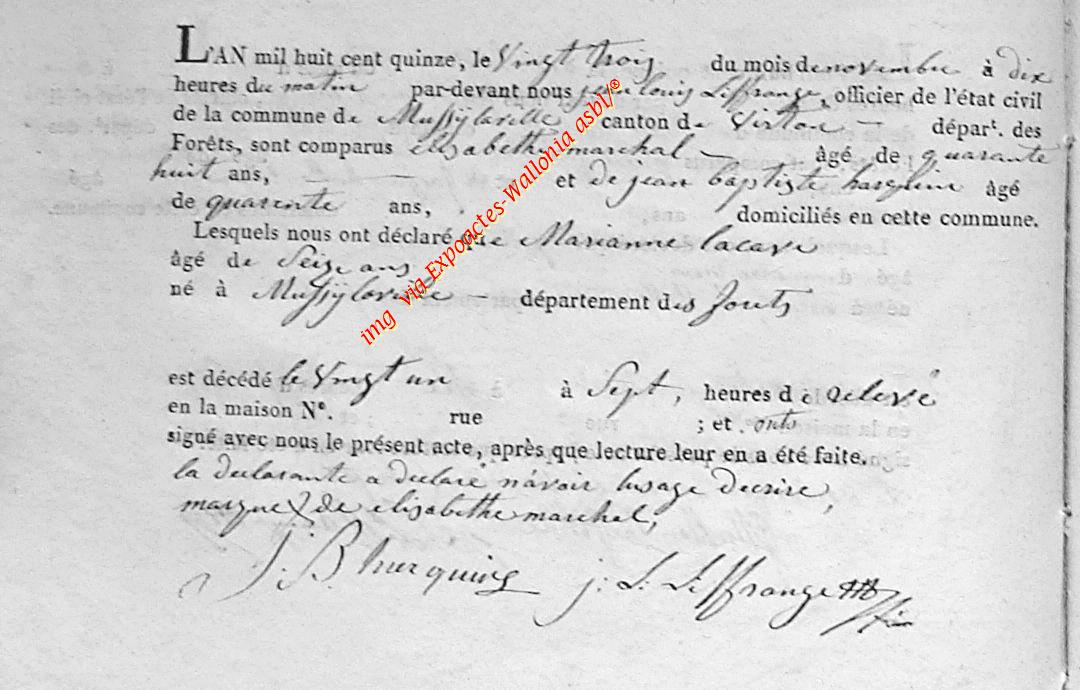 L'AN mil huit cent quinze, le Vingt trois du mois de novembre à dix
heures du matin par-devant nous jean louis Leffrange, officier de l'état civil
de la commune de Mussÿlaville canton de Virton – départ. des
Forêts, sont comparus elisabethe marchal — âgé de quarante
huit ans, — et de jean baptiste harquin âgé
de quarente ans, domiciliés en cette commune.
Lesquels nous ont déclaré que Marianne lacave
âgé de Seize ans
né à Mussÿlaville – département des forets
est décédé le Vingt un à Sept, heures de
en la maison N°. rue ; et onts
signé avec nous le présent acte, après que lecture leur en a été faite.
la declarante a declaré n'avoir lusage decrire,
marque de elisabethe marchal,
J: B hurquin j: L: Leffrange
img via Expoactes-Wallonia asbl/®